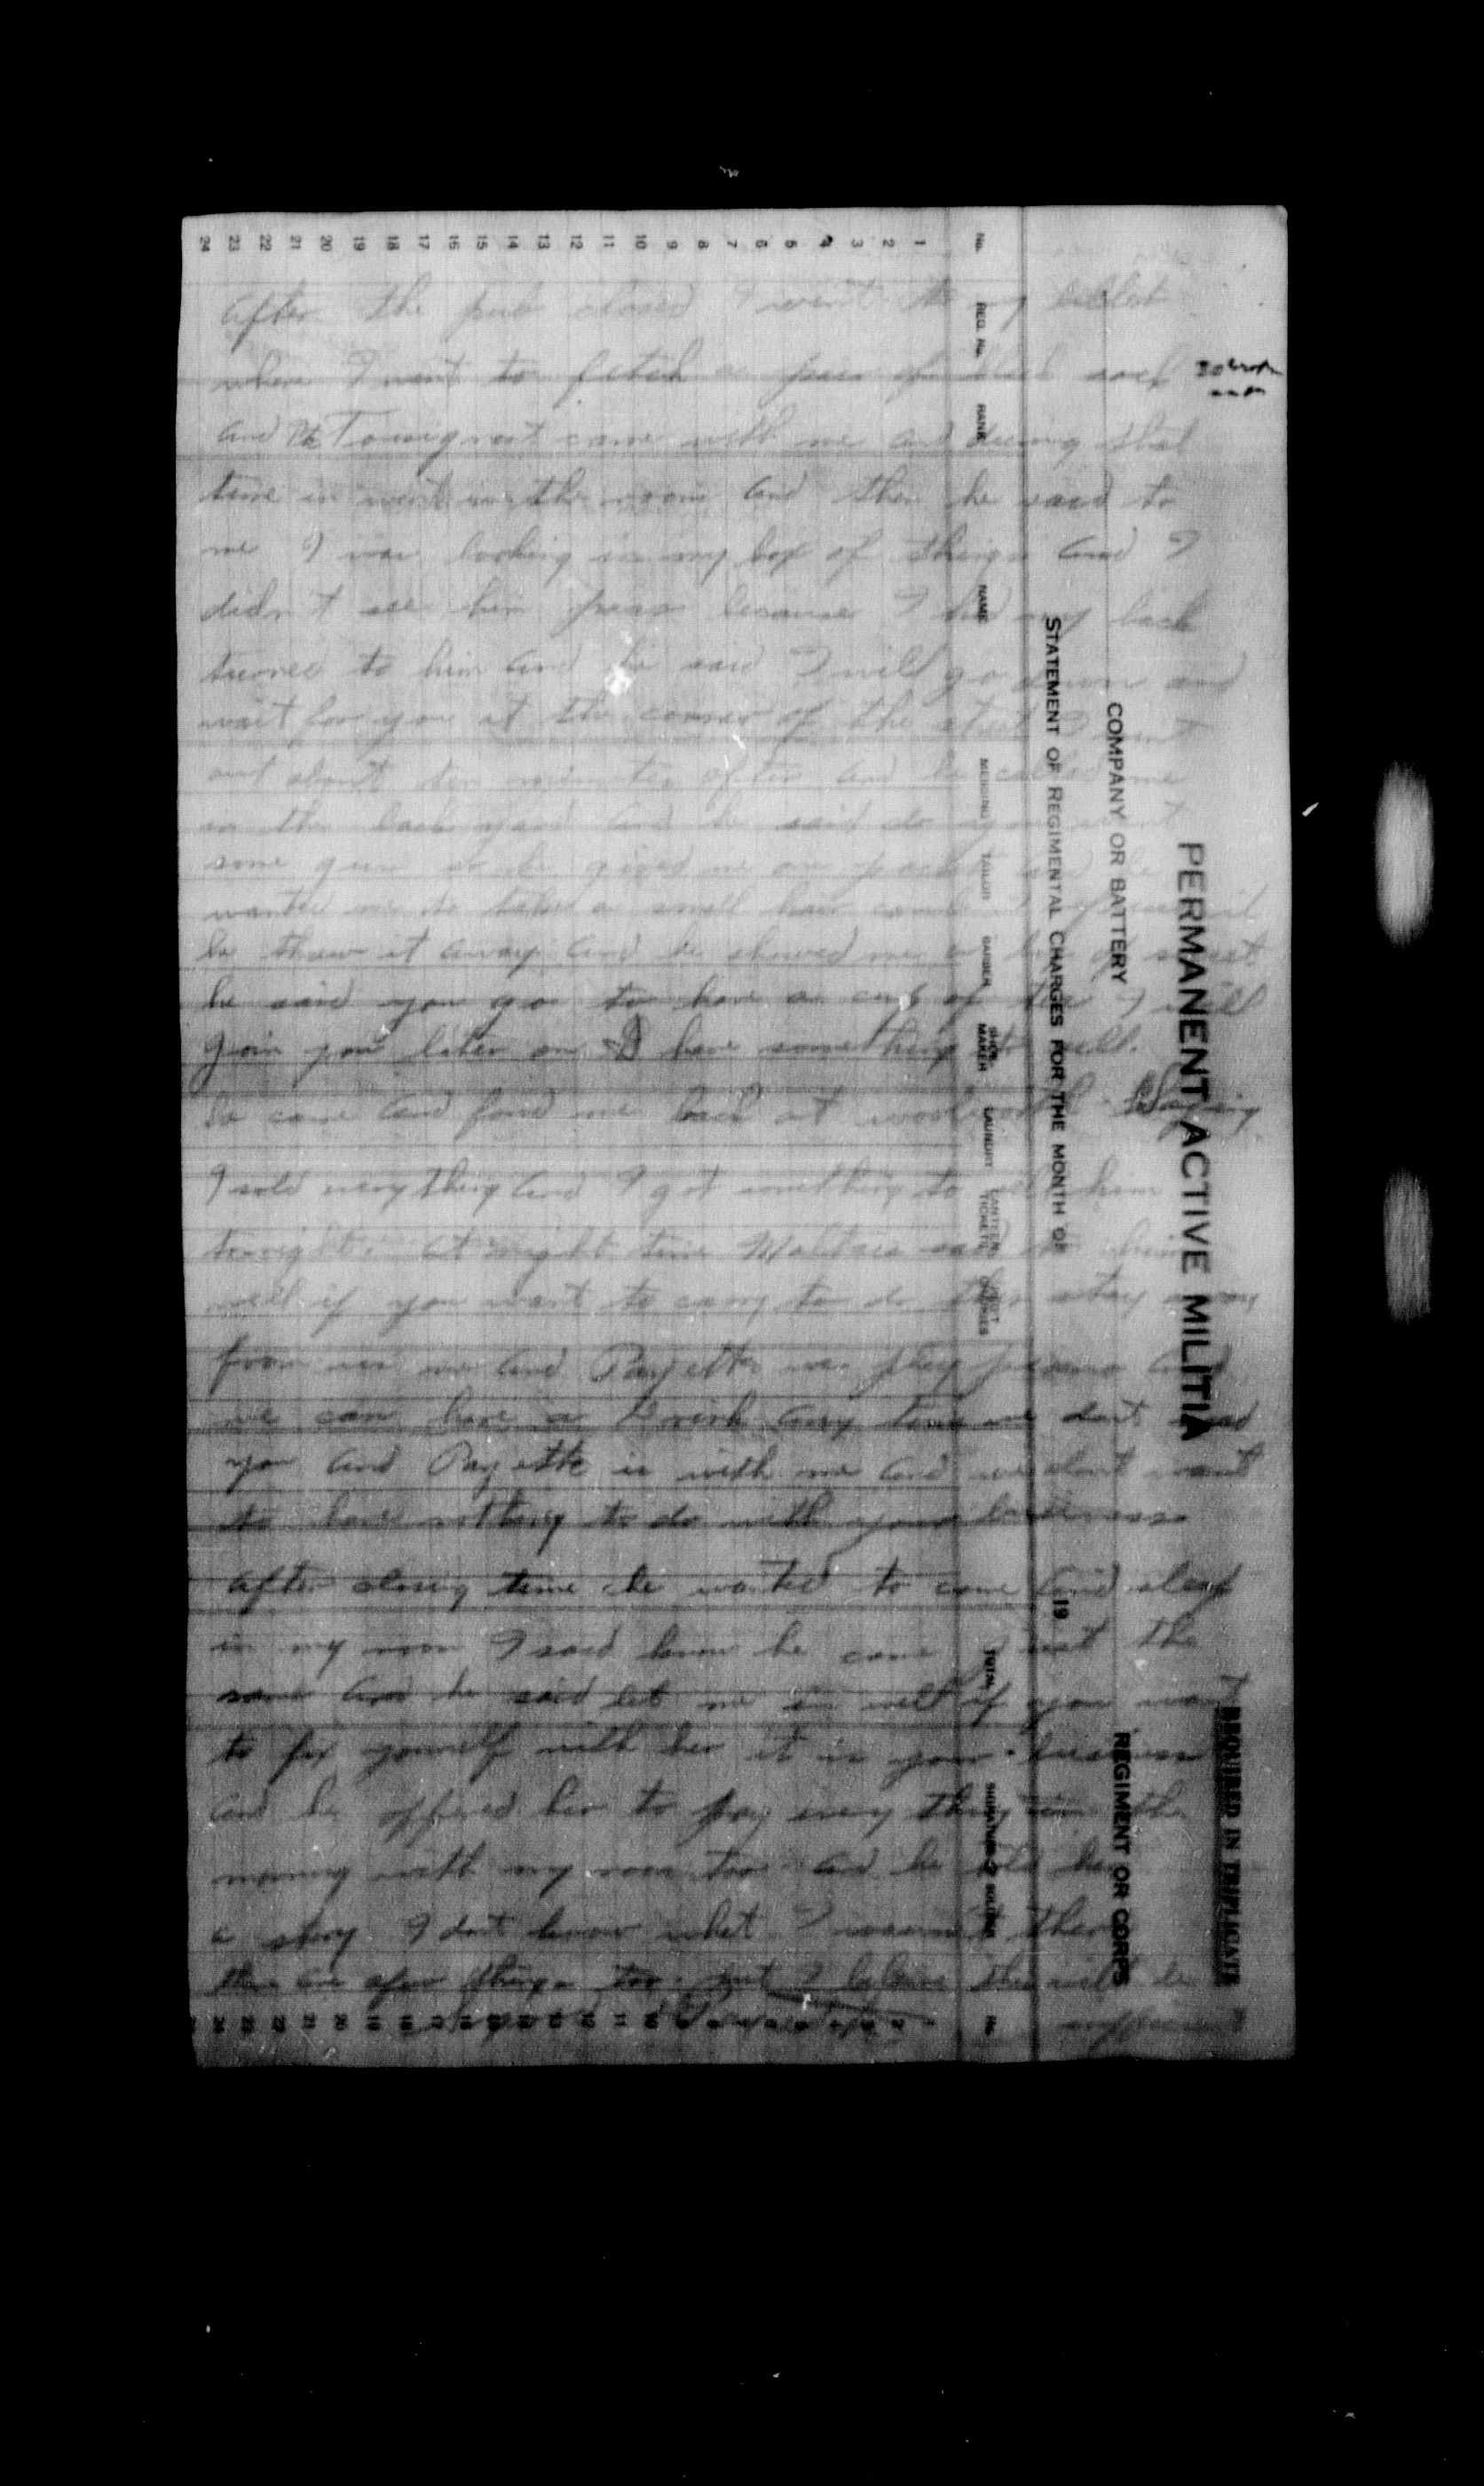 After the pub closed I went to my billet
where I went to fetch a pair of black sock
and Pte Tousignant came with me and during that
time in went in the room and then he said to
me I was looking in my box of things and I
didn't see him pass because I had my back
turned to him and he said I will go down and
wait for you at the corner of the street I went
out about ten minutes after and he called me
in the back yard and he said do you want
some gum so he gived me one packet and he
wanted me to take a small hair comb I refused it
he threw it away and he showed me a
he said you go to have a cup of tea I will
join you later on I have something to sell.
So came and found me back at
I sold every thing and I got something to sell him
tonight. At night time Maltais said to him
well if you want to carry to do this stay away
from us me and Payette we play piano and
we can have a drink any time we dont need
you and Payette is with me and we dont want
to have nothing to do with your business
After closing time he wanted to come and sleep
in my room I said know he came just the
same and he said let me in well if you want
to fix yourself with her it is your business
and he offered her to pay every thing in the
morning with my room too and he told her
a story I dont know what I wasn't there
there are afew things too but I believe this will be
Payette
PERMANENT ACTIVE MILITIA
REQUIRED IN TRIPLICATE
COMPANY OR BATTERY
REGIMENT OR CORPS
STATEMENT OF REGIMENTAL CHARGES FOR THE MONTH OF
19
No.
REG. No.
RANK
NAME
MESSING
TAILOR
BARBER
SHOE MAKER
LAUNDRY
CANTEEN TICKETS
TOTAL
SIGNATURE OF SOLDIER
No.
1 2 3 4 5 6 7 8 9 10 11 12 13 14 15 16 17 18 19 20 21 22 23 24